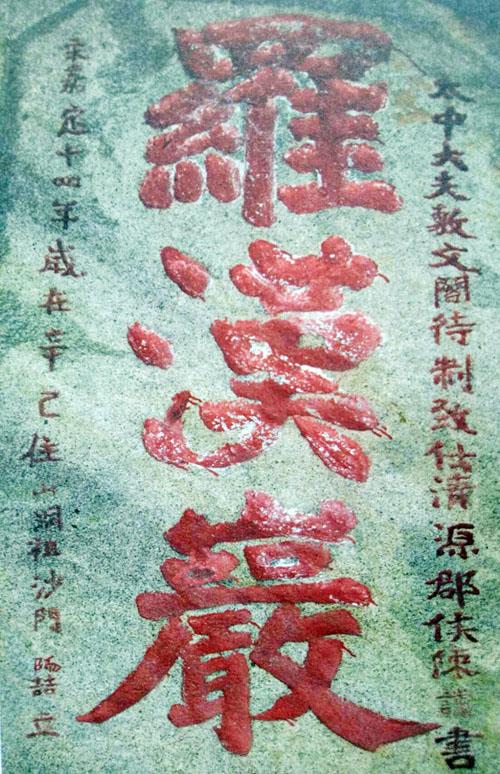 太中大夫敷文閣待制致仕清源郡侯陳讜書
羅漢巖
宋嘉定十四年歲在辛巳住山洞祖沙門立